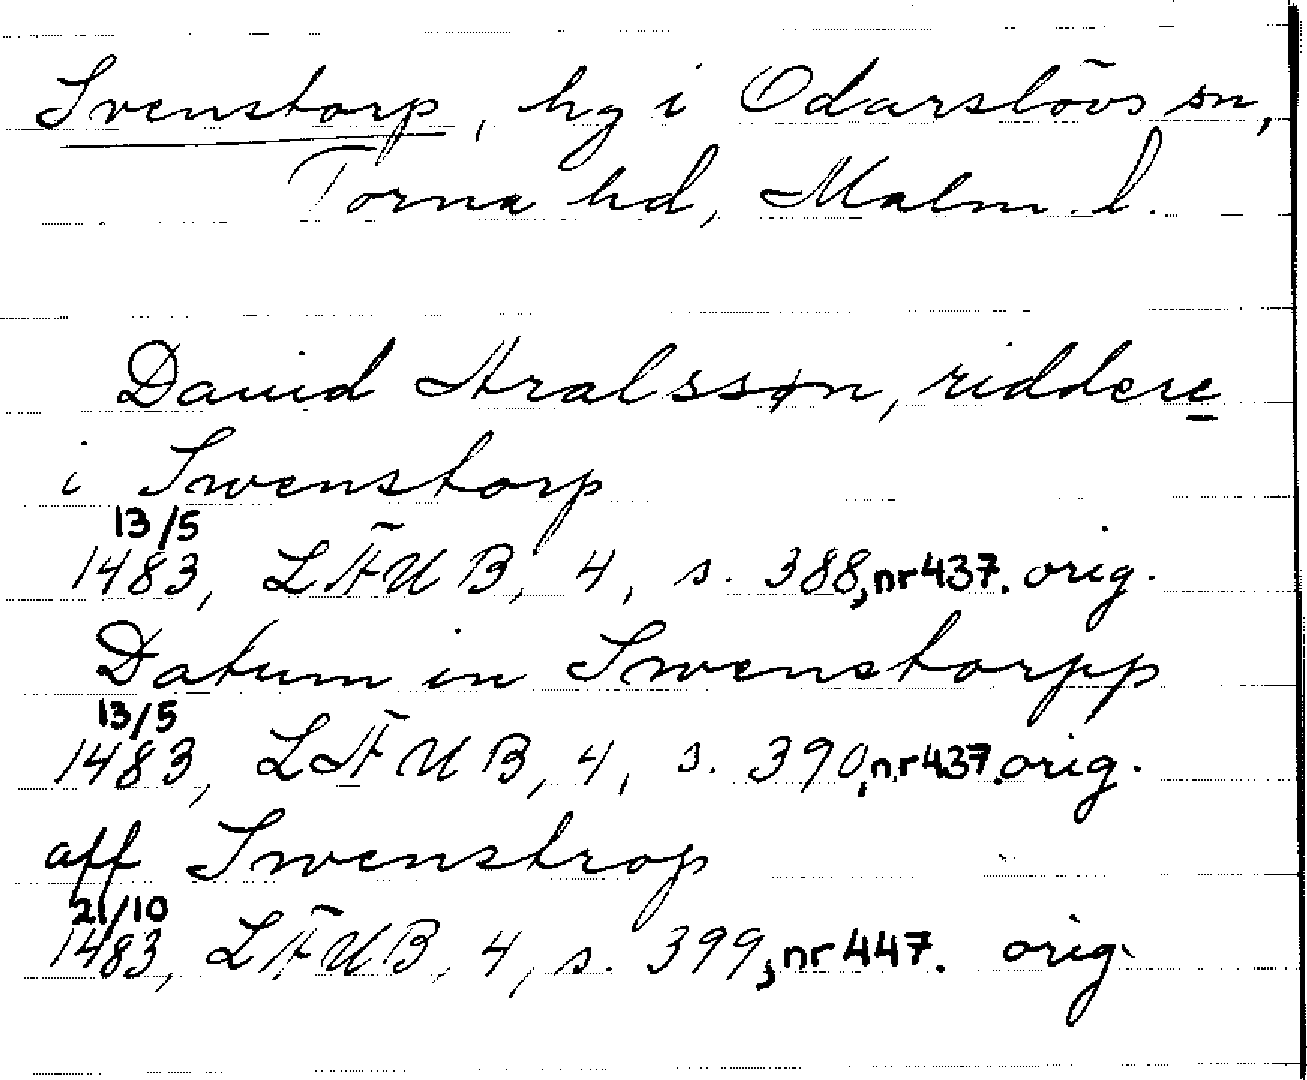 Svenstorp, hg i Odarslövs sn,
Torna hd, Malm. l.
David Aralssøn, riddere
i Swenstorp
13/5
1483, LÄUB, 4, s. 388, nr 437. orig.
Datum in Swenstorpp
13/5
1483, LÄUB, 4, s. 390, nr 437. orig.
aff Swenstrop
21/10
1483, LÄUB, 4, s. 399, nr 447. orig.